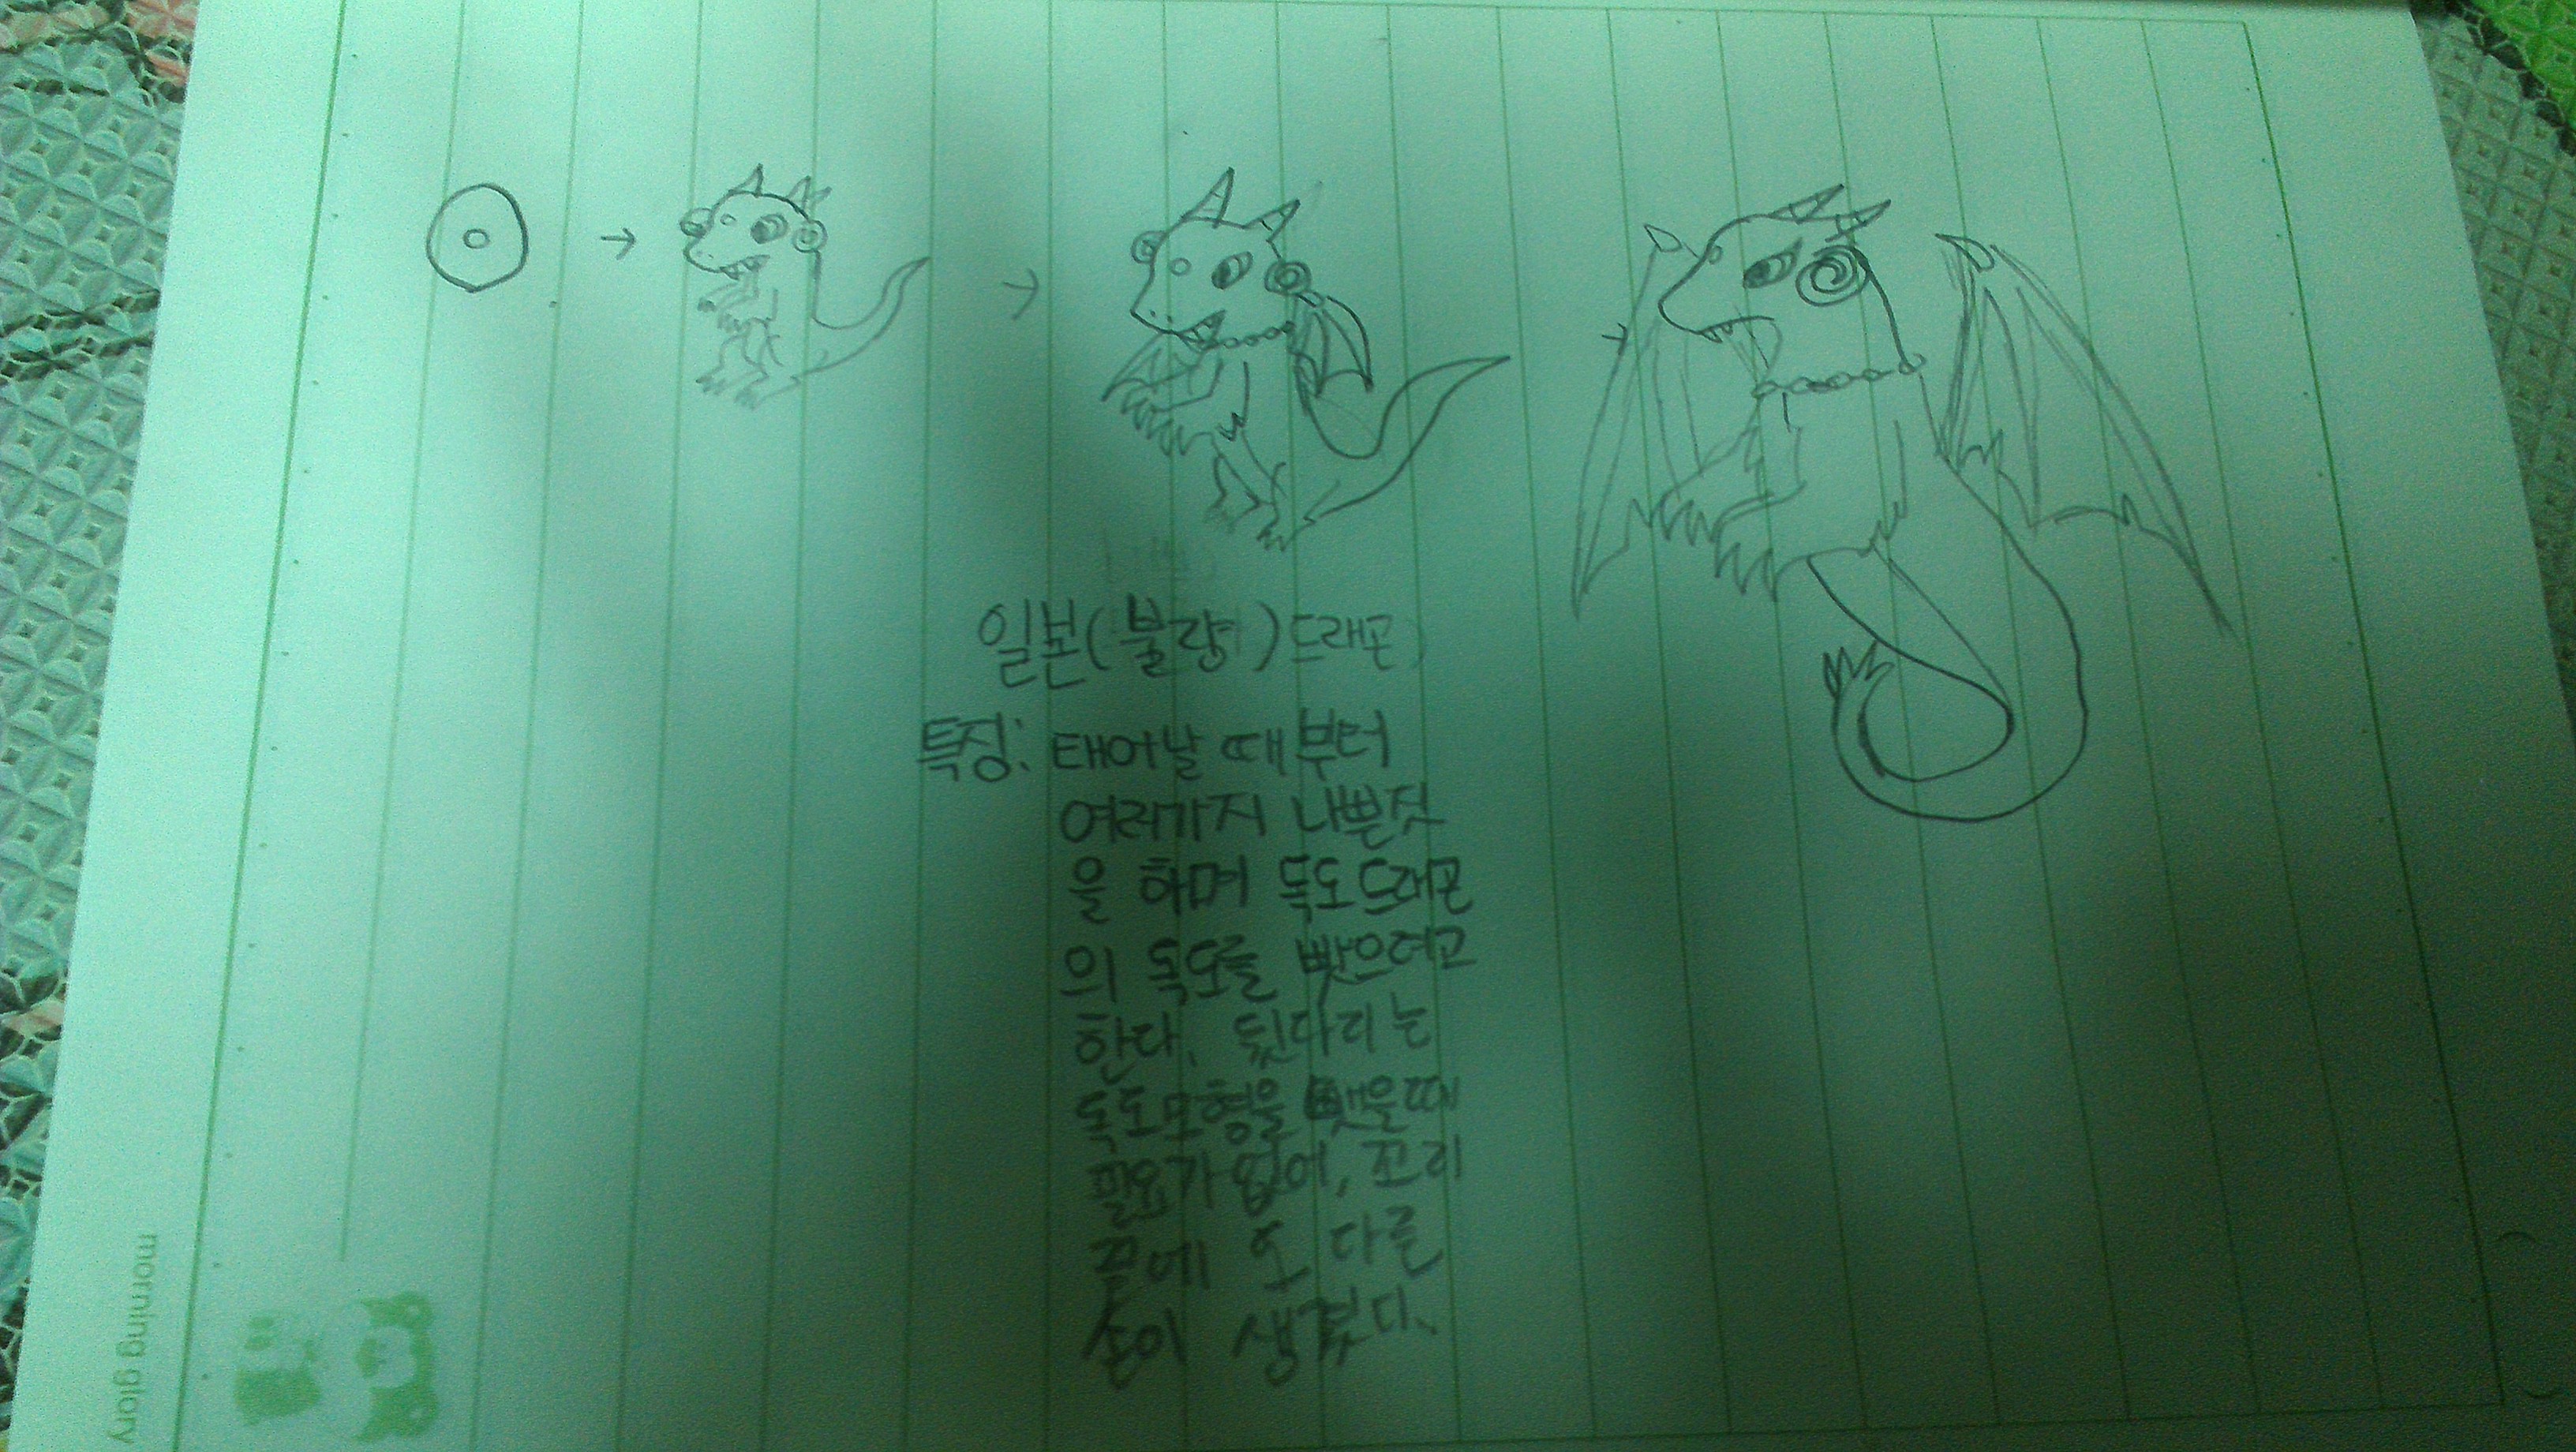 일본(불량)드래곤
특징: 태어날 때부터
여러가지 나쁜짓
을 하며 독도드래곤
의 독도를 뺏으려고
한다. 뒷다리는
독도모형을 뺏을때
필요가 없어, 꼬리
끝에 또 다른
손이 생겼다.
morning glory